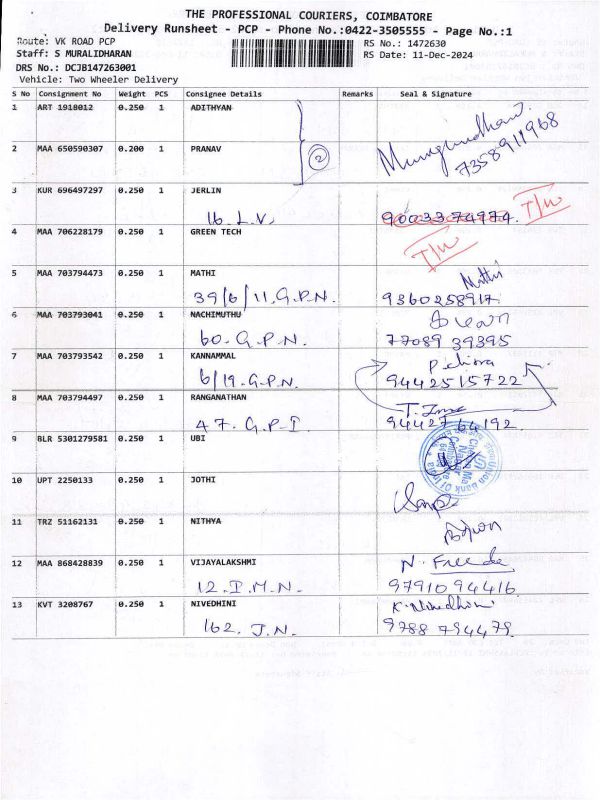 THE PROFESSIONAL COURIERS, COIMBATORE
Delivery Runsheet - PCP - Phone No.:0422-3505555 - Page No.:1
Route: VK ROAD PCP
RS No.: 1472630
Staff: S MURALIDHARAN
RS Date: 11-Dec-2024
DRS No.: DCJB147263001
Vehicle: Two Wheeler Delivery
S No Consignment No Weight PCS Consignee Details Remarks Seal & Signature
1 ART 1918012 0.250 1 ADITHYAN
2 MAA 650590307 0.200 1 PRANAV 2 7358911968
3 KUR 696497297 0.250 1 JERLIN
16. L.V. 9003374974. T/W
4 MAA 706228179 0.250 1 GREEN TECH
T/W
5 MAA 703794473 0.250 1 MATHI Mathi
39/6/11.G.P.N. 9360258917
6 MAA 703793041 0.250 1 NACHIMUTHU
60. G.P.N. 77089 39395
7 MAA 703793542 0.250 1 KANNAMMAL
6/19.G.P.N. 9442515722
8 MAA 703794497 0.250 1 RANGANATHAN
47. G.P.I. 9442764192.
9 BLR 5301279581 0.250 1 UBI
10 UPT 2250133 0.250 1 JOTHI
11 TRZ 51162131 0.250 1 NITHYA
12 MAA 868428839 0.250 1 VIJAYALAKSHMI
12. I.M.N. 9791094416.
13 KVT 3208767 0.250 1 NIVEDHINI K. Nivedhini
162. J.N. 9788 794479.